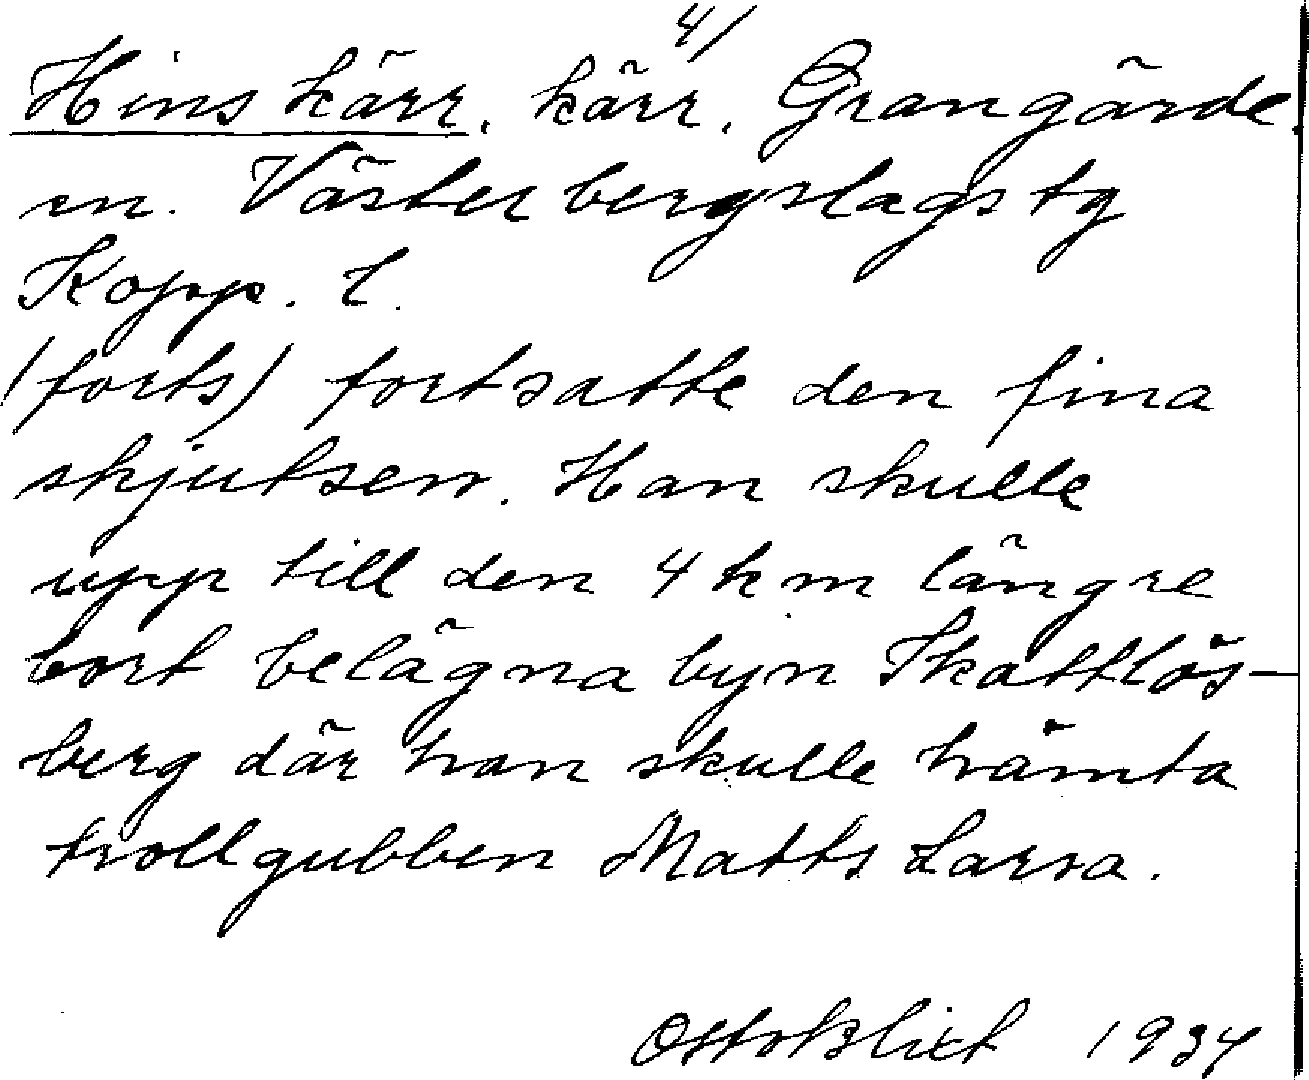 4/
Hins kärr, kärr, Grangärde
sn. Västerbergslags tg
Kopp. l.
(forts) fortsatte den fina
skjutsen. Han skulle
upp till den 4 km längre
bort belägna byn Skattlös-
berg där han skulle hämta
trollgubben Matts Larsa.
Otto Blixt 1934